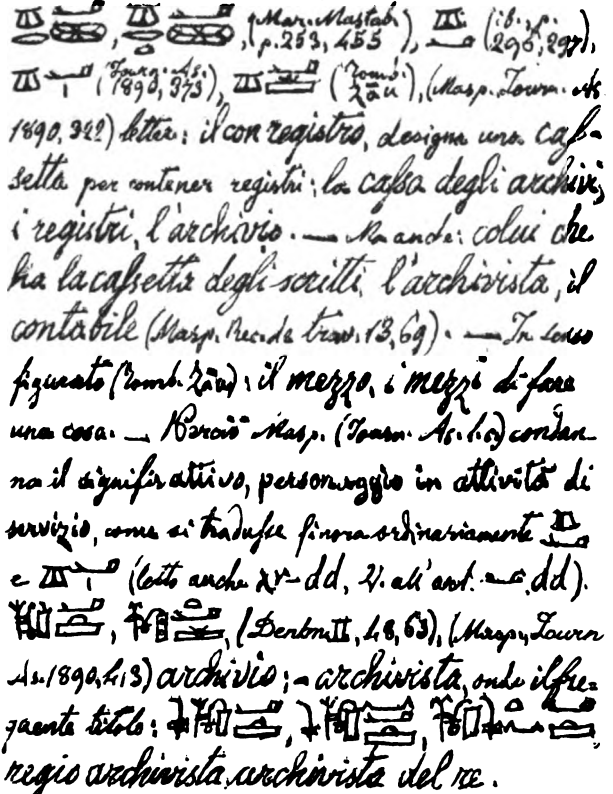 (Mar. Mastab.
p. 253, 455), (ib., p. 296, 297),
(Journ. As. 1890, 373), (Tomb. Zāu), (Masp. Journ. As
1890, 322) letter: il con registro, designa una cas-
setta per contener registri; la cassa degli archivi,
i registri, l'archivio. — Ma anche: colui che
ha la cassetta degli scritti, l'archivista, il
contabile (Masp. Rec. de trav. 13, 69). — In senso
figurato (Tomb. Zāu): il mezzo, i mezzi di fare
una cosa. — Perciò Masp. (Journ. As. l.c.) condan-
na il significativo, personaggio in attività di
servizio, come si tradusse finora ordinariamente
e (letto anche χr-dd, V. all'art. dd).
(Denkm. II, 48, 63), (Masp., Journ
As. 1890, 413) archivio; – archivista, onde il fre-
quente titolo:
regio archivista, archivista del re.